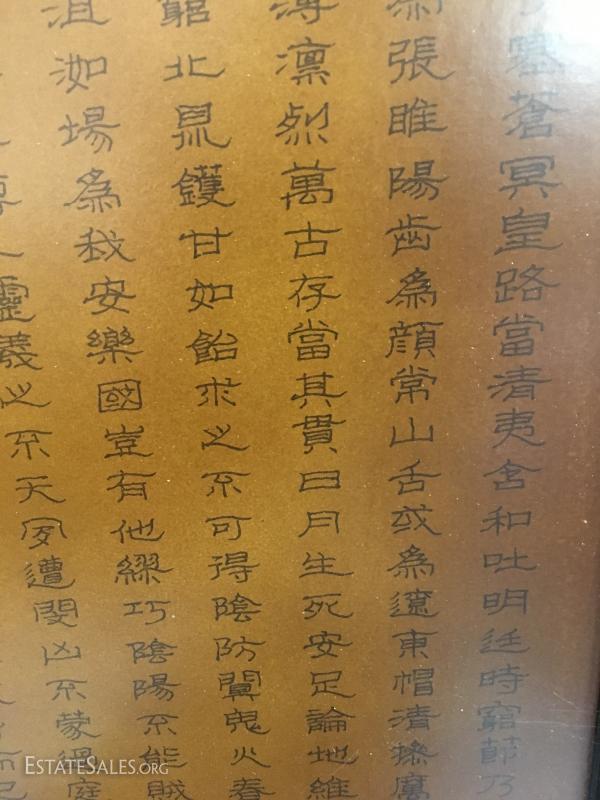 塞蒼冥皇路當清夷含和吐明廷時窮節乃
為張睢陽齒為顏常山舌或為遼東帽清操厲
薄凜烈萬古存當其貫日月生死安足論地維
窮北鼎鑊甘如飴求之不可得陰防闃鬼火春
沮洳場為我安樂國豈有他繆巧陰陽不能賊
靈義之不天遭閔凶不蒙庭
而已
ESTATESALES.ORG